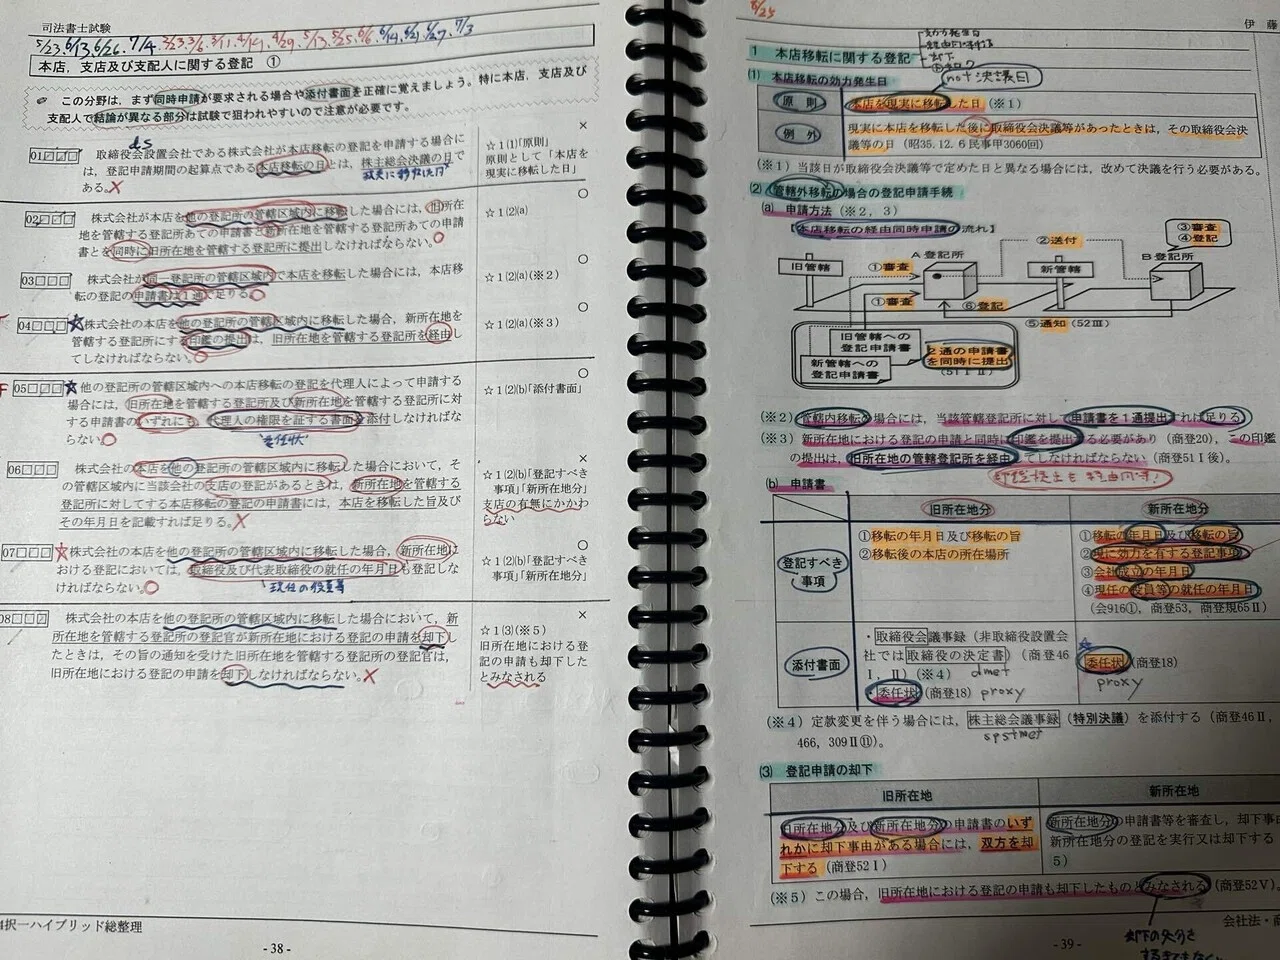 司法書士試験
5/23. 6/13. 6/26. 7/4
本店，支店及び支配人に関する登記 ①
この分野は，まず同時申請が要求される場合や添付書面を正確に覚えましょう。特に本店，支店及び
支配人で結論が異なる部分は試験で狙われやすいので注意が必要です。
ds
01□□□ 取締役会設置会社である株式会社が本店移転の登記を申請する場合に
は，登記申請期間の起算点である本店移転の日とは，株主総会決議の日で
ある。×
現実に移転した日
×
☆1⑴「原則」
原則として「本店を
現実に移転した日」
02□□□ 株式会社が本店を他の登記所の管轄区域内に移転した場合には，旧所在
地を管轄する登記所あての申請書と新所在地を管轄する登記所あての申請
書とを同時に旧所在地を管轄する登記所に提出しなければならない。○
○
☆1⑵(a)
03□□□ 株式会社が同一登記所の管轄区域内で本店を移転した場合には，本店移
転の登記の申請書は1通で足りる。○
○
☆1⑵(a)(※2)
04□□□ ☆株式会社の本店を他の登記所の管轄区域内に移転した場合，新所在地を
管轄する登記所にする印鑑の提出は，旧所在地を管轄する登記所を経由し
てしなければならない。○
○
☆1⑵(a)(※3)
05□□□ ☆他の登記所の管轄区域内への本店移転の登記を代理人によって申請する
場合には，旧所在地を管轄する登記所及び新所在地を管轄する登記所に対
する申請書のいずれにも，代理人の権限を証する書面を添付しなければな
らない。○
委任状
○
☆1⑵(b)「添付書面」
06□□□ 株式会社の本店を他の登記所の管轄区域内に移転した場合において，そ
の管轄区域内に当該会社の支店の登記があるときは，新所在地を管轄する
登記所に対してする本店移転の登記の申請書には，本店を移転した旨及び
その年月日を記載すれば足りる。×
×
☆1⑵(b)「登記すべき
事項」「新所在地分」
支店の有無にかかわ
らない
07□□□ ☆株式会社の本店を他の登記所の管轄区域内に移転した場合，新所在地に
おける登記においては，取締役及び代表取締役の就任の年月日も登記しな
ければならない。○
現任の役員等
○
☆1⑵(b)「登記すべき
事項」「新所在地分」
08□□□ 株式会社の本店を他の登記所の管轄区域内に移転した場合において，新
所在地を管轄する登記所の登記官が新所在地における登記の申請を却下し
たときは，その旨の通知を受けた旧所在地を管轄する登記所の登記官は，
旧所在地における登記の申請を却下しなければならない。×
×
☆1⑶(※5)
旧所在地における登
記の申請も却下した
とみなされる
択一ハイブリッド総整理
- 38 -
8/25
伊藤
1 本店移転に関する登記
効力発生日
経由同時申請
却下
⑴ 本店移転の効力発生日
not 決議日
原則
本店を現実に移転した日(※1)
例外
現実に本店を移転した後に取締役会決議等があったときは，その取締役会決
議等の日(昭35.12.6民事甲3060回)
(※1) 当該日が取締役会決議等で定めた日と異なる場合には，改めて決議を行う必要がある。
⑵ 管轄外移転の場合の登記申請手続
(a) 申請方法(※2，3)
【本店移転の経由同時申請の流れ】
旧管轄
A登記所
②送付
新管轄
B登記所
③審査
④登記
①審査
①審査
⑥登記
⑤通知(52Ⅲ)
旧管轄への
登記申請書
新管轄への
登記申請書
2通の申請書
を同時に提出
(51ⅠⅡ)
(※2) 管轄内移転の場合には，当該管轄登記所に対して申請書を1通提出すれば足りる。
(※3) 新所在地における登記の申請と同時に印鑑を提出する必要があり(商登20)，この印鑑
の提出は，旧所在地の管轄登記所を経由してしなければならない(商登51Ⅰ後)。
印鑑提出も経由同時！
(b) 申請書
旧所在地分
新所在地分
登記すべき
事項
①移転の年月日及び移転の旨
②移転後の本店の所在場所
①移転の年月日及び移転の旨
②現に効力を有する登記事項
③会社成立の年月日
④現任の役員等の就任の年月日
(会916①，商登53，商登規65Ⅱ)
添付書面
・取締役会議事録(非取締役設置会
社では取締役の決定書)(商登46
Ⅰ，Ⅱ)(※4)
dmet
・委任状(商登18) proxy
☆
委任状(商登18)
proxy
(※4) 定款変更を伴う場合には，株主総会議事録(特別決議)を添付する(商登46Ⅱ，
466，309Ⅱ⑪)。
spstmet
⑶ 登記申請の却下
旧所在地
新所在地
旧所在地分及び新所在地分の申請書のいず
れかに却下事由がある場合には，双方を却
下する(商登52Ⅰ)
新所在地分の申請書等を審査し，却下事由
新所在地分の登記を実行又は却下する
5)
(※5) この場合，旧所在地における登記の申請も却下したものとみなされる(商登52Ⅴ)。
却下の処分を
会社法・商
- 39 -